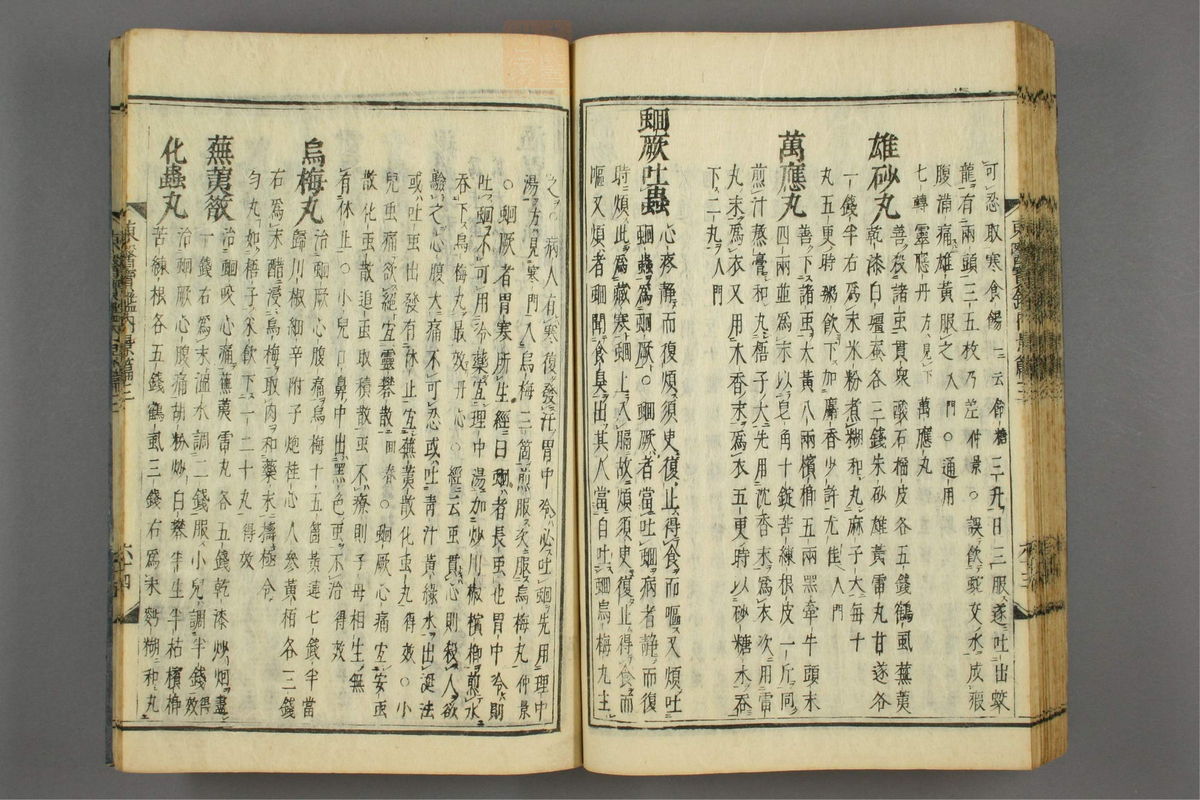 可忍取寒食餳一云飴糖三升日三服遂吐出蛟
龍有兩頭三五枚乃差仲景○誤飮蛟女水成瘕
腹滿痛雄黃服之入門○通用
七轉靈應丹方見下萬應丸
雄砂丸善殺諸虫貫衆酸石榴皮各五錢鶴虱蕪荑
乾漆白殭蚕各三錢朱砂雄黃雷丸甘遂各
一錢半右爲末米粉煮糊和丸麻子大每十
丸五更時粥飮下加麝香少許尤佳入門
萬應丸善下諸虫大黃八兩檳榔五兩黑牽牛頭末
四兩並爲末以皂角十錠苦練根皮一斤同
煎汁熬膏和丸梧子大先用沈香末爲衣次用雷
丸末爲衣又用木香末爲衣五更時以砂糖水呑
下二丸入門
蛔厥吐蟲心疼靜而復煩須臾復止得食而嘔又煩吐
蛔蟲爲蛔厥○蛔厥者當吐蛔病者靜而復
時煩此爲藏寒蛔上入膈故煩須臾復止得食而
嘔又煩者蛔聞食臭出其人當自吐蛔烏梅丸主
東醫寶鑑內景篇
六十三
之○病人有寒復發汗胃中冷必吐蛔先用理中
湯方見寒門入烏梅三箇煎服灸服烏梅丸仲景
○蛔厥者胃寒所生經曰蛔者長虫也胃中冷則
吐蛔不可用冷藥宜理中湯加炒川椒檳榔煎水
呑下烏梅丸最效丹心○經云虫貫心則殺人欲
驗之心腹大痛不可忍或吐青汁黃綠水出涎沫
或吐虫出發有休止宜蕪荑散化虫丸得效○小
兒虫痛欲絕宜靈礬散回春○蛔厥心痛宜安虫
散化虫散追虫取積散虫不療則子母相生無
有休止○小兒口鼻中出黑色虫不治得效
烏梅丸治蛔厥心腹痛烏梅十五箇黃連七錢半當
歸川椒細辛附子炮桂心人參黃栢各三錢
右爲末醋浸烏梅取肉和藥末擣極令
勻丸如梧子米飮下一二十丸得效
蕪荑散治蛔咬心痛蕪荑雷丸各五錢乾漆炒烟盡
一錢右爲末溫水調二錢服小兒調半錢得效
化蟲丸治蛔厥心腹痛胡粉炒白礬半生半枯檳榔
苦練根各五錢鶴虱三錢右爲末麪糊和丸
東醫寶鑑內景篇
六十四